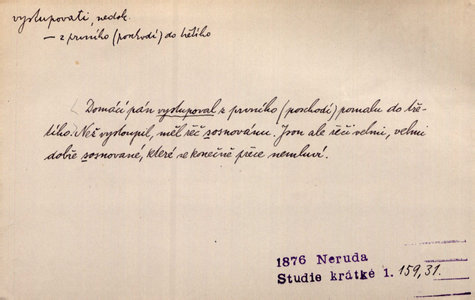 vystupovati, nedok.
— z prvního (poschodí) do třetího
Domácí pán vystupoval z prvního (poschodí) pomalu do tře-
tího. Než vystoupil, měl řeč sosnovánu. Jsou ale řeči velmi, velmi
dobře sosnované, které se konečně přece nemluví.
1876 Neruda
Studie krátké 1. 159,31.